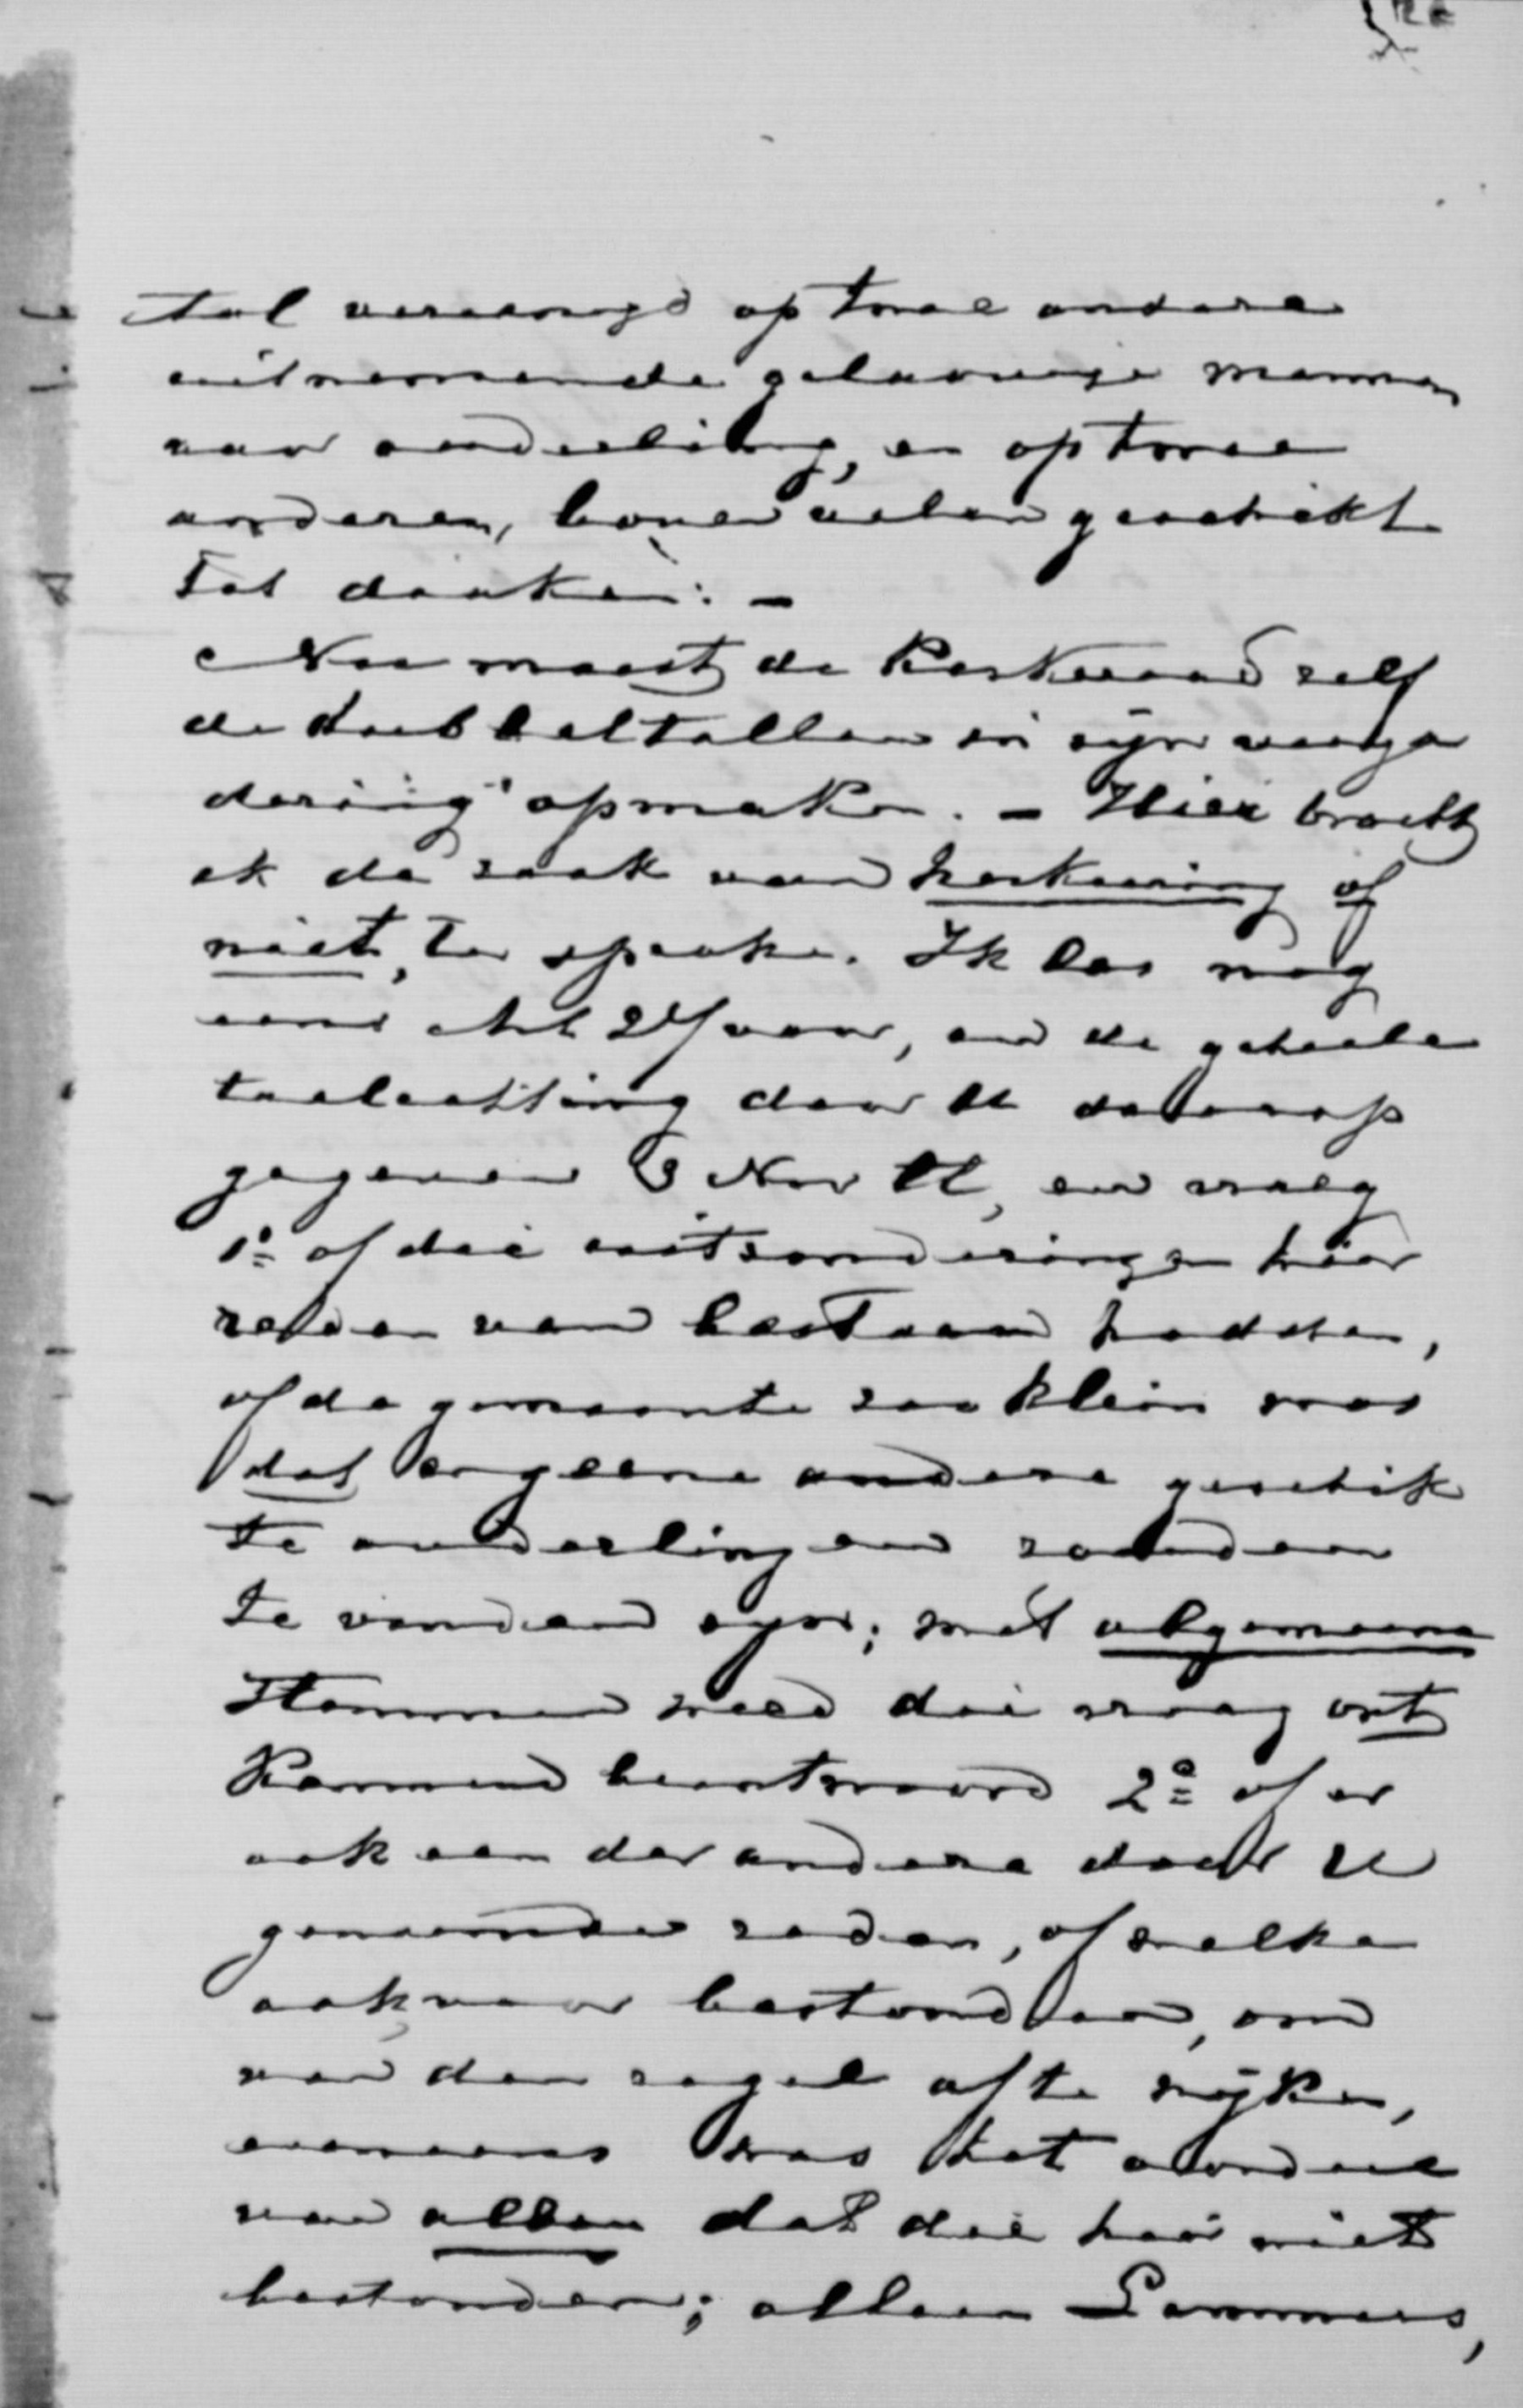 tal vereenigd op twee andere
uitnemende geloovige mannen
voor ouderling, en op twee
anderen, boven velen geschikt
tot diaken. –
Nu moest de Kerkeraad zelf
de dubbeltallen in zijn verga
dering opmaken. – Hier bracht
ik de zaak van herkiezing of
niet, ter sprake. Ik las nog
eens Art 27 voor, en de geheele
toelichting door U daarop
gegeven 3 Nov ll, en vroeg
1º of die uitzonderingen hier
reden van bestaan hadden,
of de gemeente zoo klein was
dat er geene andere geschik
te ouderlingen zouden
te vinden zijn; met algemeene
Stemmen werd die vraag ont
kennend beantwoord 2º of er
ook een der andere door U
genoemde reden, of welke
ook voor bestonden, om
van den regel af te wijken,
eveneens was het oordeel
van allen dat die hier niet
bestonden; alleen Lammers,